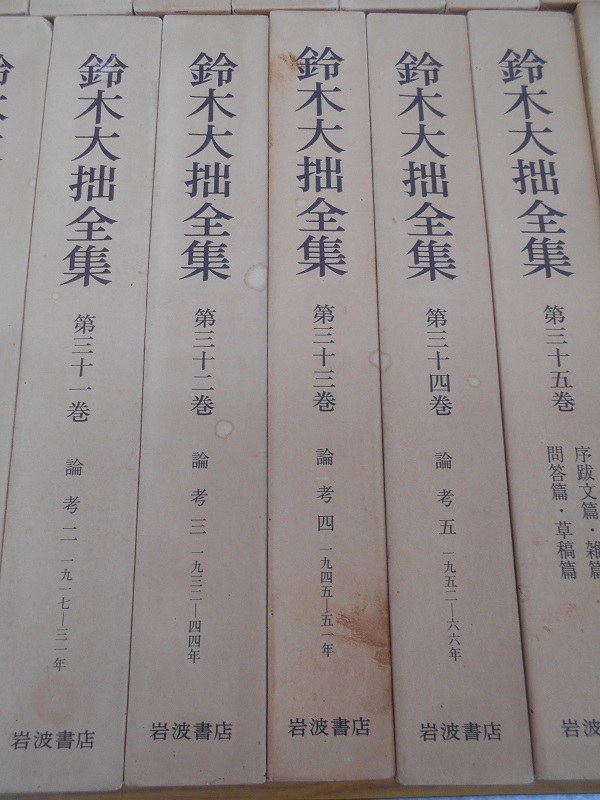 鈴木大拙全集
第三十一巻
論考二 一九一七―三一年
岩波書店
鈴木大拙全集
第三十二巻
論考三 一九三二―四四年
岩波書店
鈴木大拙全集
第三十三巻
論考四 一九四五―五一年
岩波書店
鈴木大拙全集
第三十四巻
論考五 一九五二―六六年
岩波書店
鈴木大拙全集
第三十五巻
序跋文篇・雑篇
問答篇・草稿篇
岩波